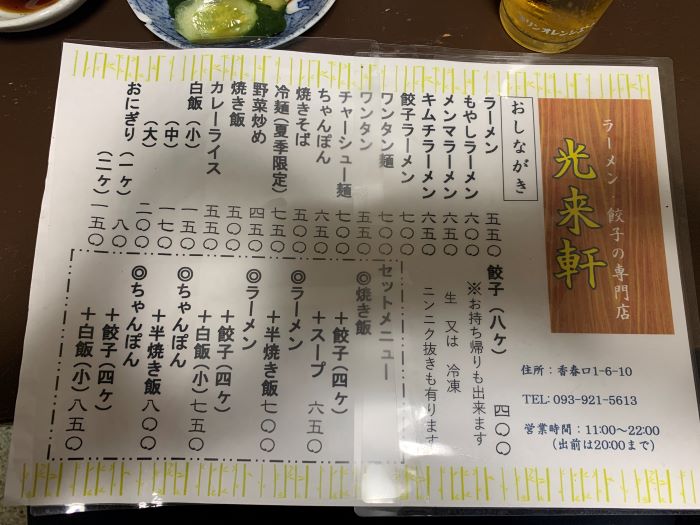 ラーメン 餃子の専門店
光来軒
住所：香春口1-6-10
TEL: 093-921-5613
営業時間：11:00～22:00
（出前は20:00まで）
おしながき
ラーメン 五五〇
もやしラーメン 六〇〇
メンマラーメン 六五〇
キムチラーメン 六五〇
餃子ラーメン 七〇〇
ワンタン麺 七〇〇
ワンタン 五五〇
チャーシュー麺 七〇〇
ちゃんぽん 六五〇
焼きそば 五〇〇
冷麺（夏季限定） 七五〇
野菜炒め 四五〇
焼き飯 五〇〇
カレーライス 五五〇
白飯（小） 一五〇
（中） 一七〇
（大） 二〇〇
おにぎり（一ケ） 八〇
（二ケ） 一五〇
餃子（八ケ） 四〇〇
※お持ち帰りも出来ます
生 又は 冷凍
ニンニク抜きも有ります
セットメニュー
◎焼き飯
＋餃子（四ケ）
＋スープ 六五〇
◎ラーメン
＋半焼き飯 七〇〇
◎ラーメン
＋餃子（四ケ）
＋白飯（小）七五〇
◎ちゃんぽん
＋半焼き飯 八〇〇
◎ちゃんぽん
＋餃子（四ケ）
＋白飯（小）八五〇